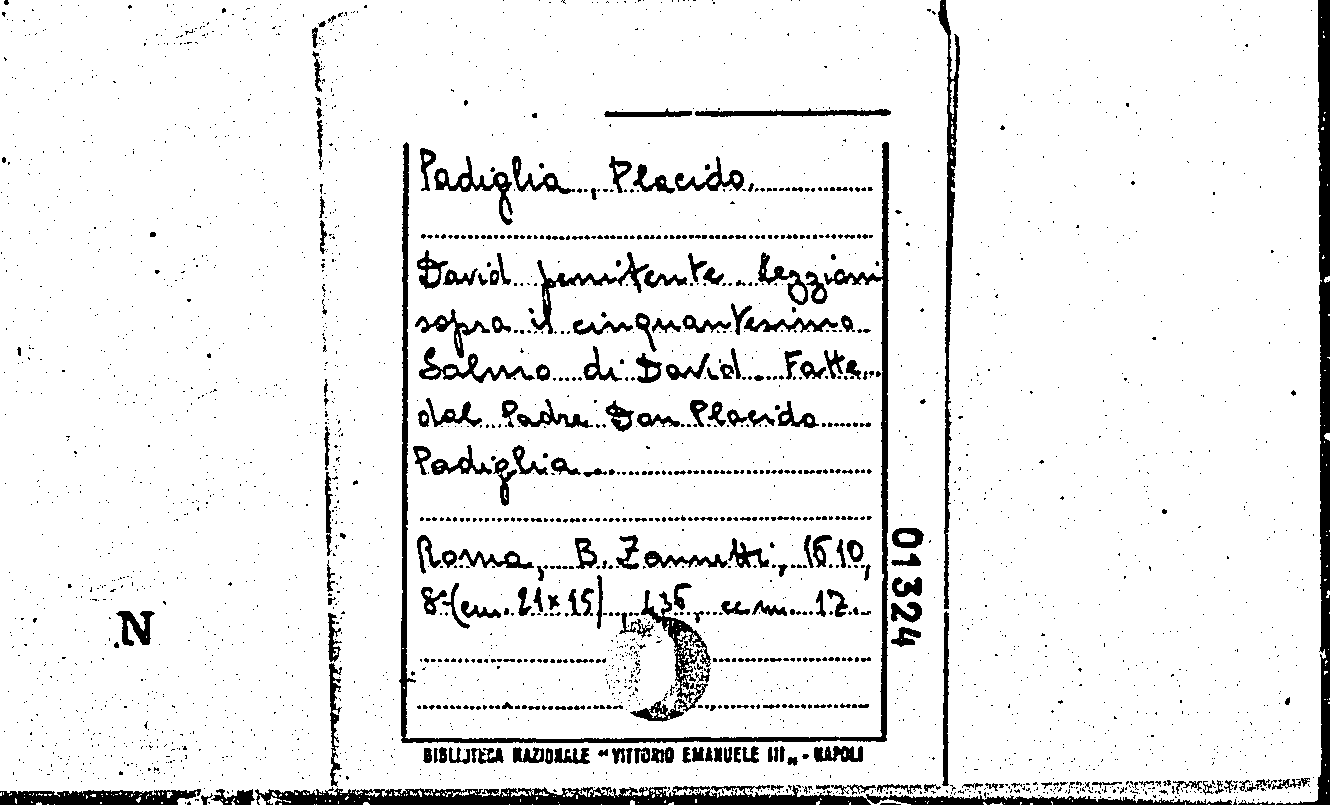 Padiglia, Placido.
David penitente. Lezzioni
sopra il cinquantesimo
Salmo di David. Fatte
dal Padre Don Placido
Padiglia.
Roma, B. Zannetti, 1610,
8°(cm. 21x15) 436, cc m. 12.
01324
N
BIBLIOTECA NAZIONALE "VITTORIO EMANUELE III„ - NAPOLI